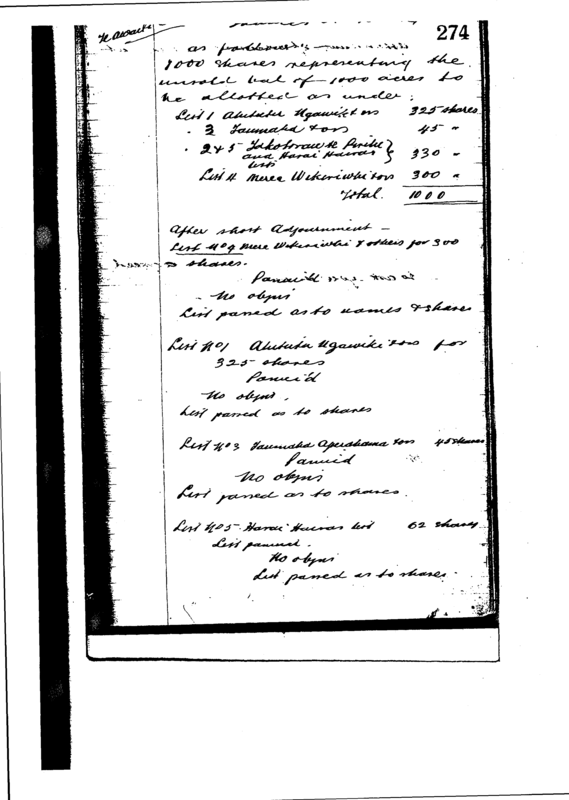 274
as
1000 shares representing the
unsold bal of 1000 acres to
be allotted as under:
List 1 Ngawiki & ors 325 shares
" 3 Taumaha & ors 45 "
" 2 & 5
and Harai Hairas lists } 330 "
List 4 Merea Wikiriwhi & ors 300 "
Total. 1000
After short Adjournment –
List No 4 Mere Wikiriwhi & others for 300
shares.
No objns
List passed as to names & shares
List No 1 Ngawiki & ors for
325 shares
Panui'd
No objns.
List passed as to shares
List No 3 Taumaha Aperahama & ors 45 shares
Panuid
No objns
List passed as to shares.
List No 5 Harai Hairas list 62 shares
List panuied.
No objns
List passed as to shares.